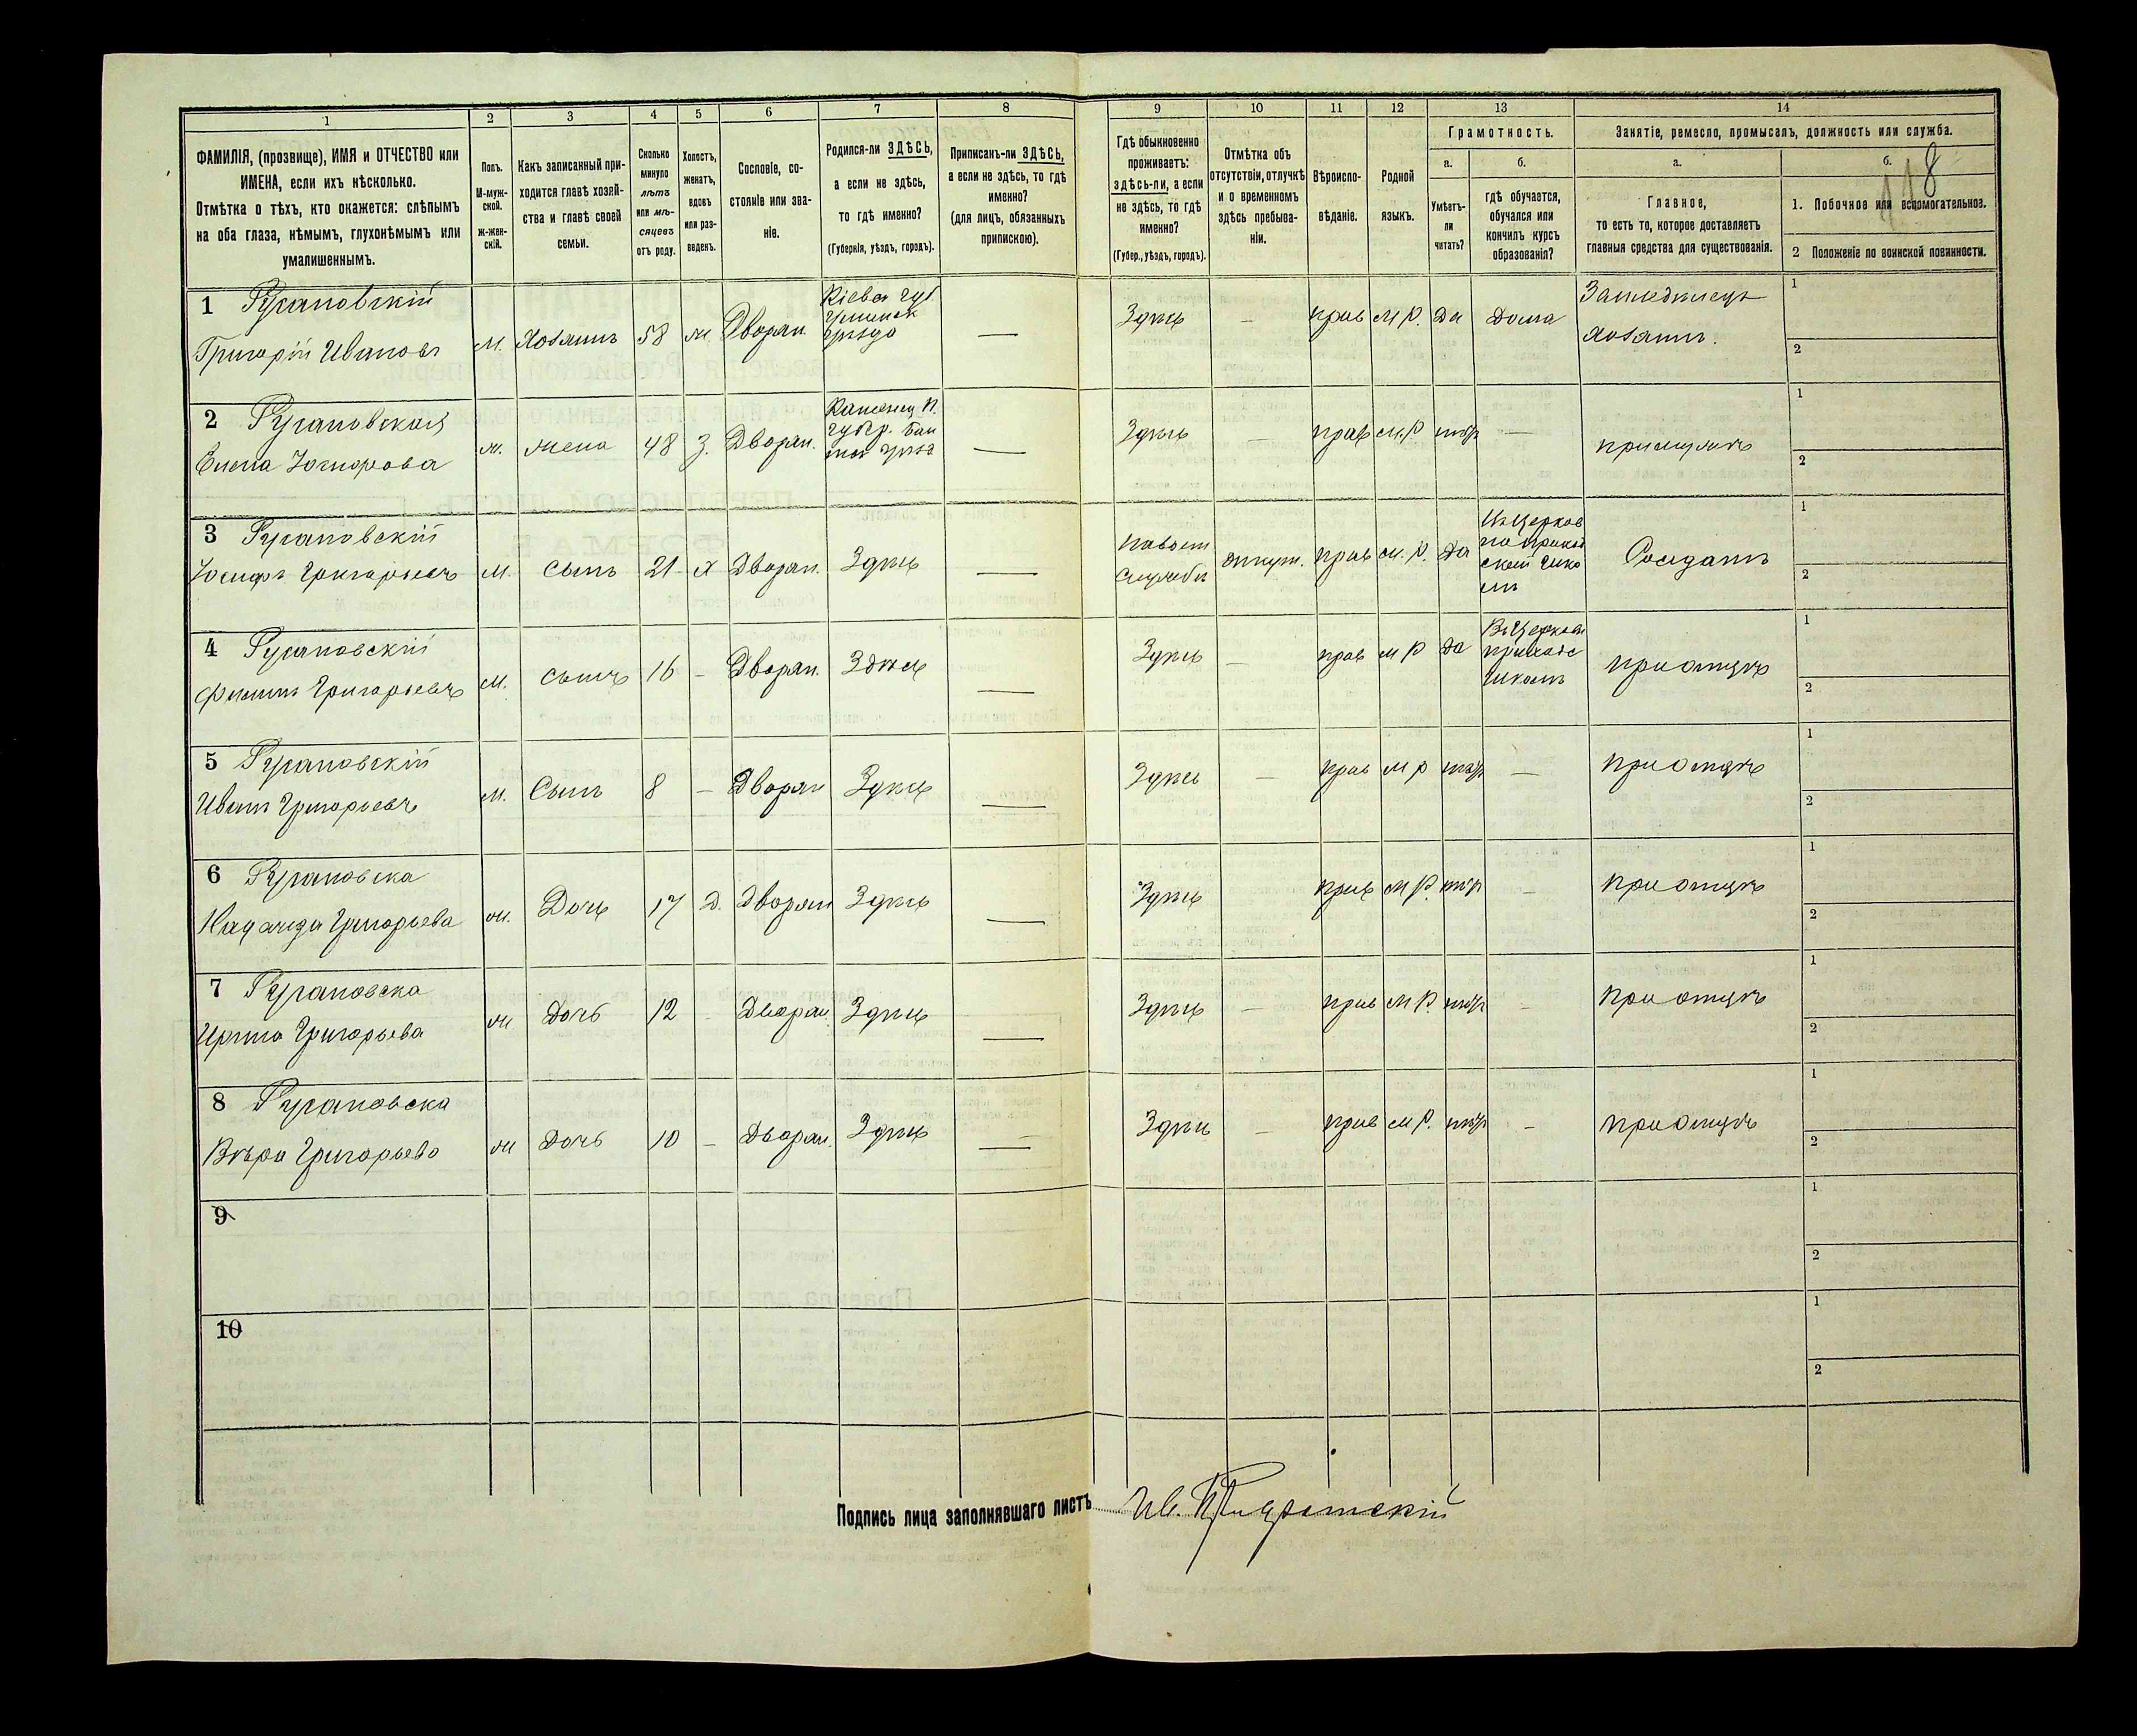 1 2 3 4 5 6 7 8 9 10 11 12 13 14
ФАМИЛІЯ, (прозвище), ИМЯ и ОТЧЕСТВО или
ИМЕНА, если ихъ нѣсколько.
Отмѣтка о тѣхъ, кто окажется: слѣпымъ
на оба глаза, нѣмымъ, глухонѣмымъ или
умалишеннымъ.
Полъ.
М-муж-
ской.
ж-жен-
скій.
Какъ записанный при-
ходится главѣ хозяй-
ства и главѣ своей
семьи.
Сколько
минуло
лѣтъ
или мѣ-
сяцевъ
отъ роду.
Холостъ,
женатъ,
вдовъ
или раз-
веденъ.
Сословіе, со-
стояніе или зва-
ніе.
Родился-ли ЗДѢСЬ,
а если не здѣсь,
то гдѣ именно?
(Губернія, уѣздъ, городъ).
Приписанъ-ли ЗДѢСЬ,
а если не здѣсь, то гдѣ
именно?
(для лицъ, обязанныхъ
припискою).
Гдѣ обыкновенно
проживаетъ:
здѣсь-ли, а если
не здѣсь, то гдѣ
именно?
(Губер., уѣздъ, городъ).
Отмѣтка объ
отсутствіи, отлучкѣ
и о временномъ
здѣсь пребыва-
ніи.
Вѣроиспо-
вѣданіе.
Родной
языкъ.
Грамотность.
а.
Умѣетъ-
ли
читать?
б.
гдѣ обучается,
обучался или
кончилъ курсъ
образованія?
Занятіе, ремесло, промыселъ, должность или служба.
а.
Главное,
то есть то, которое доставляетъ
главныя средства для существованія.
б.
118
1. Побочное или вспомогательное.
2 Положеніе по воинской повинности.
1 Русановскій
Григорій Ивановъ
м. Хозяинъ 58 ж. Дворян.
Кіевск губ
Уманск
уѣзда
—
Здѣсь — прав М Р. Да Дома
Хозяинъ.
1
2
2 Русановская
Елена
ж. жена 48 З. Дворян.
Каменец П.
губер.
—
Здѣсь — прав М.Р —
1
2
3 Русановскій
Іосифъ Григорьевъ
М. Сынъ 21 Х Дворян. Здѣсь —
службѣ
отлуч. прав М.Р. Да
Солдатъ
1
2
4 Русановскій
Филиппъ Григорьевъ
М. Сынъ 16 — Дворян. Здѣсь —
Здѣсь — прав М Р Да
школѣ
при отцѣ
1
2
5 Русановскій
Иванъ Григорьевъ
М. Сынъ 8 — Дворян Здѣсь —
Здѣсь — прав М Р —
при отцѣ
1
2
6 Русановска
Надежда Григорьева
ж. Дочь 17 Д. Дворян Здѣсь —
Здѣсь прав М Р. —
при отцѣ
1
2
7 Русановска
Ирина Григорьева
ж Дочь 12 Дворян. Здѣсь —
Здѣсь — прав М Р. —
при отцѣ
1
2
8 Русановска
Вѣра Григорьева
ж Дочь 10 — Дворян. Здѣсь —
Здѣсь — прав М Р. —
при отцѣ
1
2
9
1
2
10
1
2
Подпись лица заполнявшаго листъ Ив.